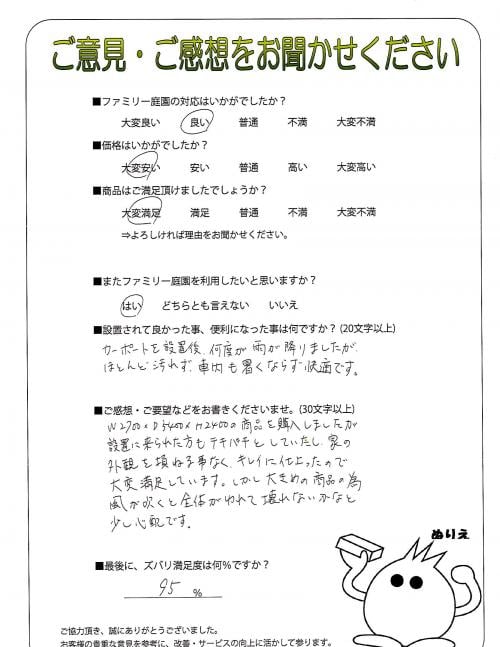 ご意見・ご感想をお聞かせください
■ファミリー庭園の対応はいかがでしたか？
大変良い 良い 普通 不満 大変不満
■価格はいかがでしたか？
大変安い 安い 普通 高い 大変高い
■商品はご満足頂けましたでしょうか？
大変満足 満足 普通 不満 大変不満
⇒よろしければ理由をお聞かせください。
■またファミリー庭園を利用したいと思いますか？
はい どちらとも言えない いいえ
■設置されて良かった事、便利になった事は何ですか？(20文字以上)
カーポートを設置後、何度か雨が降りましたが
ほとんど汚れず、車内も暑くならず快適です。
■ご感想・ご要望などをお書きくださいませ。(30文字以上)
W2700×D5400×H2400の商品を購入しましたが
設置に来られた方もテキパキとしていたし、家の
外観を損ねる事なく、キレイに仕上ったので
大変満足しています。しかし大きめの商品の為
風が吹くと全体がゆれて壊れないかなと
少し心配です。
ぬりえ
■最後に、ズバリ満足度は何％ですか？
95 %
ご協力頂き、誠にありがとうございました。
お客様の貴重な意見を参考に、改善・サービスの向上に活かして参ります。